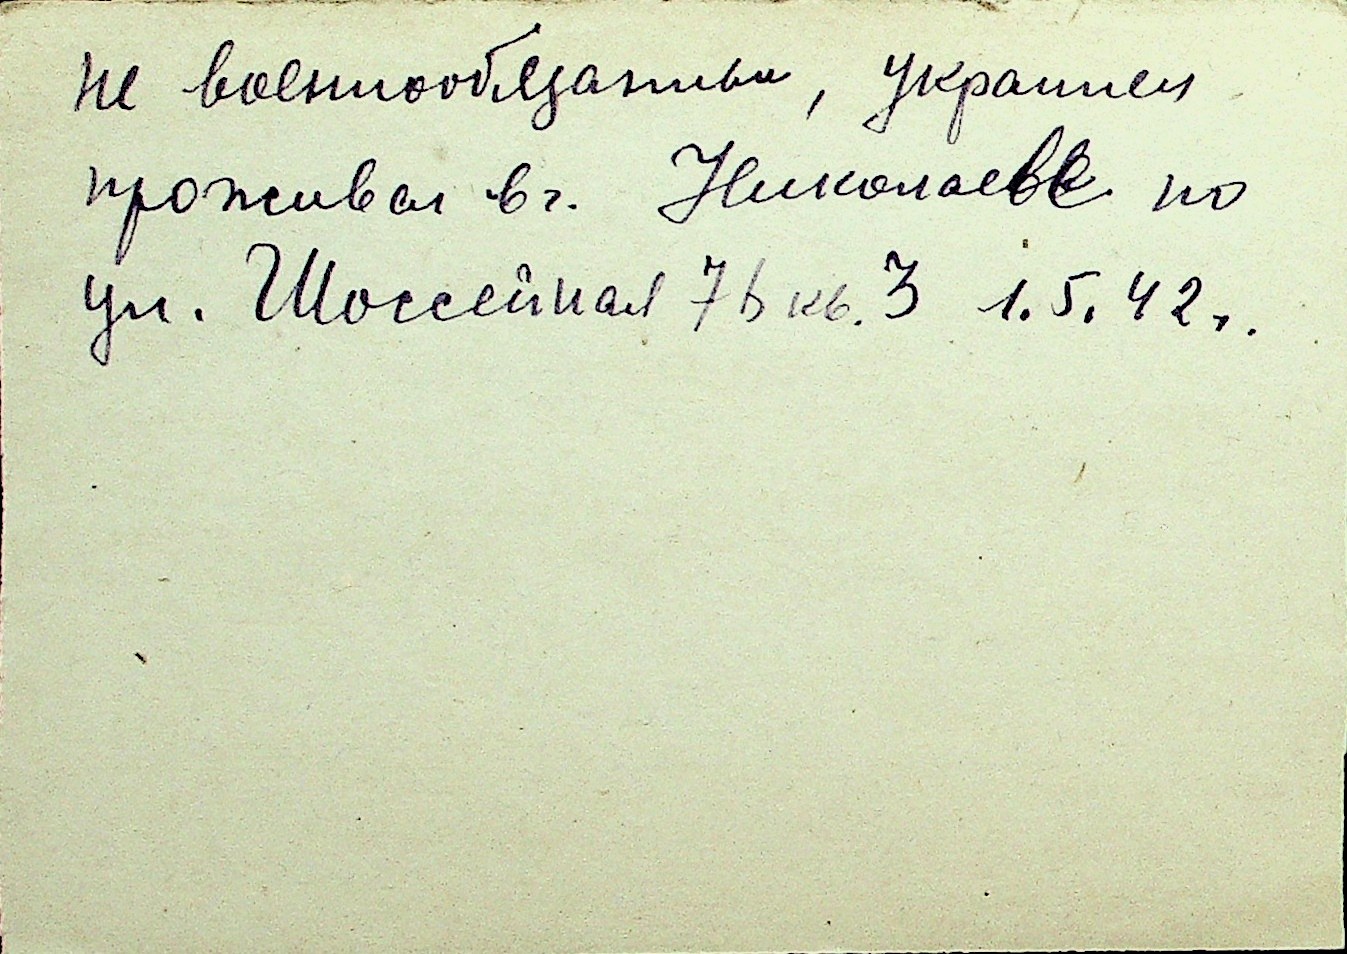 не военнообязанный, украинец
проживал в г. Николаеве по
ул. Шоссейная 7b кв. 3 1.5.42 г.